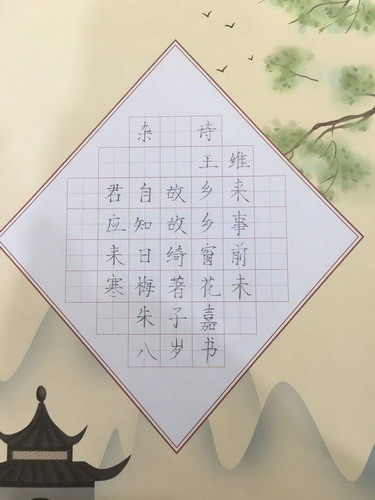 杂诗
王维
君自故乡来
应知故乡事
来日绮窗前
寒梅著花未
朱子嘉
八岁书